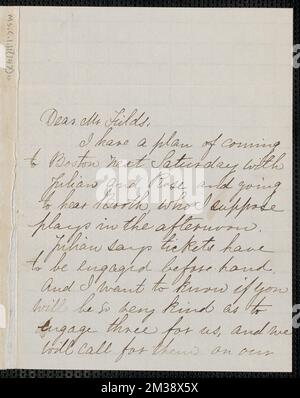 Dear Mr Fields,
I have a plan of coming
to Boston next Saturday with
Julian and Rose and going
to hear Booth who I suppose
plays in the afternoon.
Julian says tickets have
to be engaged before hand
And I want to know if you
will be so very kind as to
engage three for us, and we
will call for them on our
alamy
www.alamy.com
2M38X5X